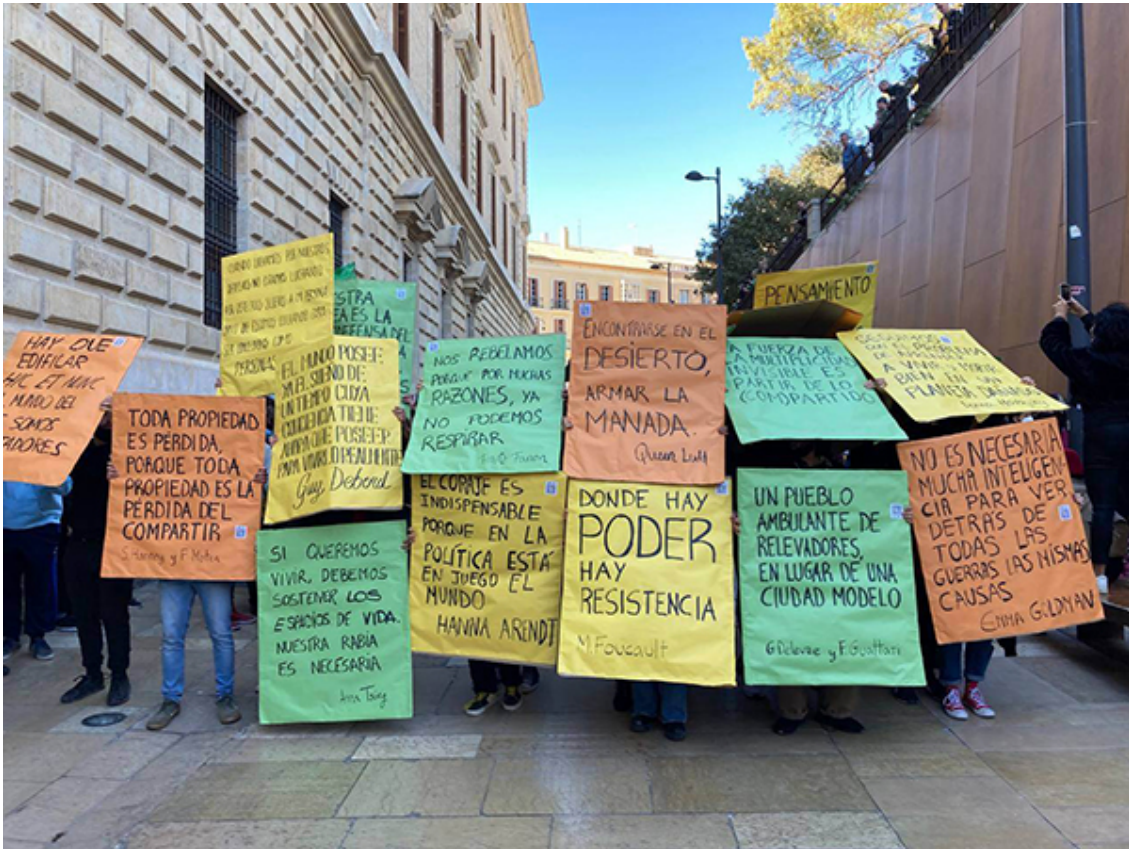 HAY QUE
EDIFICAR
HIC ET NUNC
MUNDO DEL
SOMOS
TODA PROPIEDAD
ES PÉRDIDA,
PORQUE TODA
PROPIEDAD ES LA
PÉRDIDA DEL
COMPARTIR
CUANDO
PERSONAS
EL MUNDO POSEE
YA EL SUEÑO DE
UN TIEMPO CUYA
CONCIENCIA TIENE
AHORA QUE POSEER
PARA VIVIRLO REALMENTE
Guy Debord
DEFENSA DEL
SI QUEREMOS
VIVIR, DEBEMOS
SOSTENER LOS
ESPACIOS DE VIDA.
NUESTRA RABIA
ES NECESARIA
NOS REBELAMOS
PORQUE POR MUCHAS
RAZONES, YA
NO PODEMOS
RESPIRAR
EL CORAJE ES
INDISPENSABLE
PORQUE EN LA
POLÍTICA ESTÁ
EN JUEGO EL
MUNDO
HANNA ARENDT
ENCONTRARSE EN EL
DESIERTO,
ARMAR LA
MANADA.
DONDE HAY
PODER
HAY
RESISTENCIA
M. Foucault
PENSAMIENTO
LA FUERZA DE
LA MULTIPLICIDAD
INVISIBLE ES
PARTIR DE LO
COMPARTIDO
A VIVIR Y MORIR
BIEN EN UN
PLANETA
UN PUEBLO
AMBULANTE DE
RELEVADORES,
EN LUGAR DE UNA
CIUDAD MODELO
G. Deleuze y F. Guattari
NO ES NECESARIA
MUCHA INTELIGEN-
CIA PARA VER
DETRÁS DE
TODAS LAS
GUERRAS LAS MISMAS
CAUSAS
EMMA GOLDMAN